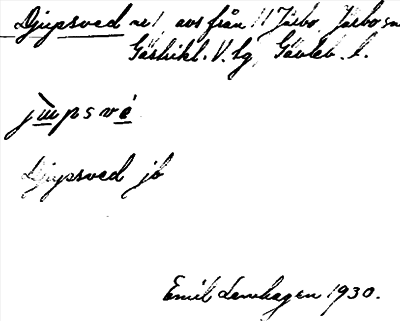 Djupsved nr 1, avs från 11 Järbo, Järbo sn
Gästrikl. V. tg, Gävleb. l.
jupsve
Djupsved jb
Emil Lennhagen 1930.